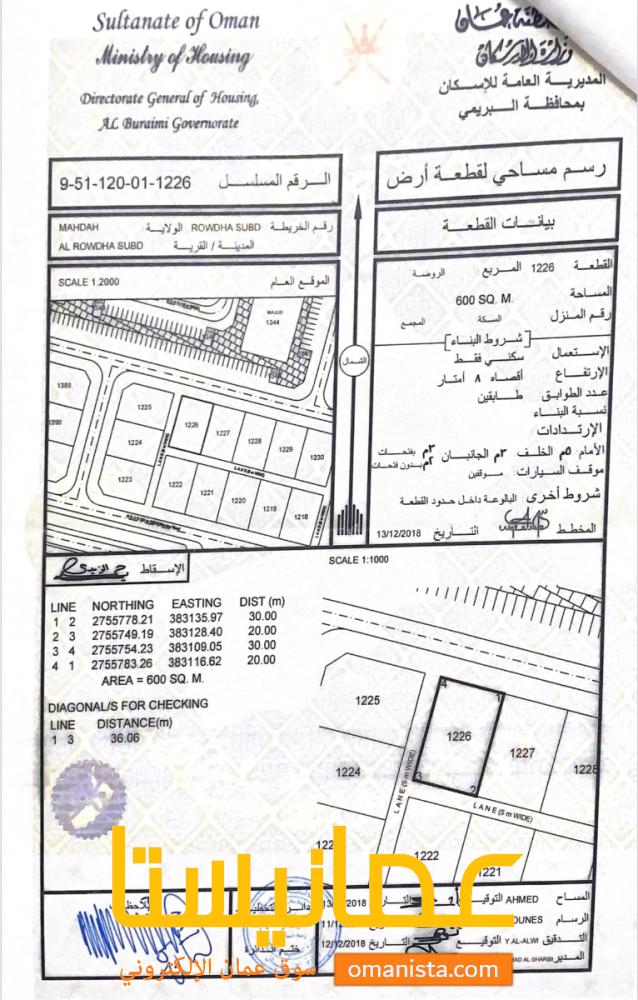 Sultanate of Oman
Ministry of Housing
Directorate General of Housing,
AL Buraimi Governorate
وزارة الإسكان
المديرية العامة للإسكان
بمحافظة البريمي
رسم مساحي لقطعة أرض
الرقم المسلسل 9-51-120-01-1226
بيانات القطعة
رقم الخريطة ROWDHA SUBD الولاية MAHDAH
المدينة / القرية AL ROWDHA SUBD
القطعة 1226 المربع الروضة
المساحة 600 SQ. M.
رقم المنزل السكة المجمع
شروط البناء
الإستعمال سكني فقط
الإرتفاع أقصاه ٨ أمتار
عدد الطوابق طابقين
نسبة البناء
الإرتدادات
الأمام ٥م الخلف ٣م الجانبان ٣م بفتحات
٢م بدون فتحات
موقف السيارات موقفين
شروط أخرى البالوعة داخل حدود القطعة
المخطط التاريخ 13/12/2018
الموقع العام SCALE 1:2000
MAJLIS
1344
1389
1390
1225
1226
1227
1228
1229
1230
1224
1223
1222
1221
1220
1219
1218
LANE (5 m WIDE)
الشمال
الإسقاط
SCALE 1:1000
LINE NORTHING EASTING DIST (m)
1 2 2755778.21 383135.97 30.00
2 3 2755749.19 383128.40 20.00
3 4 2755754.23 383109.05 30.00
4 1 2755783.26 383116.62 20.00
AREA = 600 SQ. M.
DIAGONAL/S FOR CHECKING
LINE DISTANCE(m)
1 3 36.06
4
1
1225
1226
1227
1228
1224
3
2
LANE (5 m WIDE)
LANE (5 m WIDE)
1222
1221
المساح AHMED التوقيع التاريخ
الرسام
التدقيق Y.AL-ALWI التوقيع التاريخ 12/12/2018
المدير
ختم الدائرة
عمانيستا
سوق عمان الإلكتروني
omanista.com